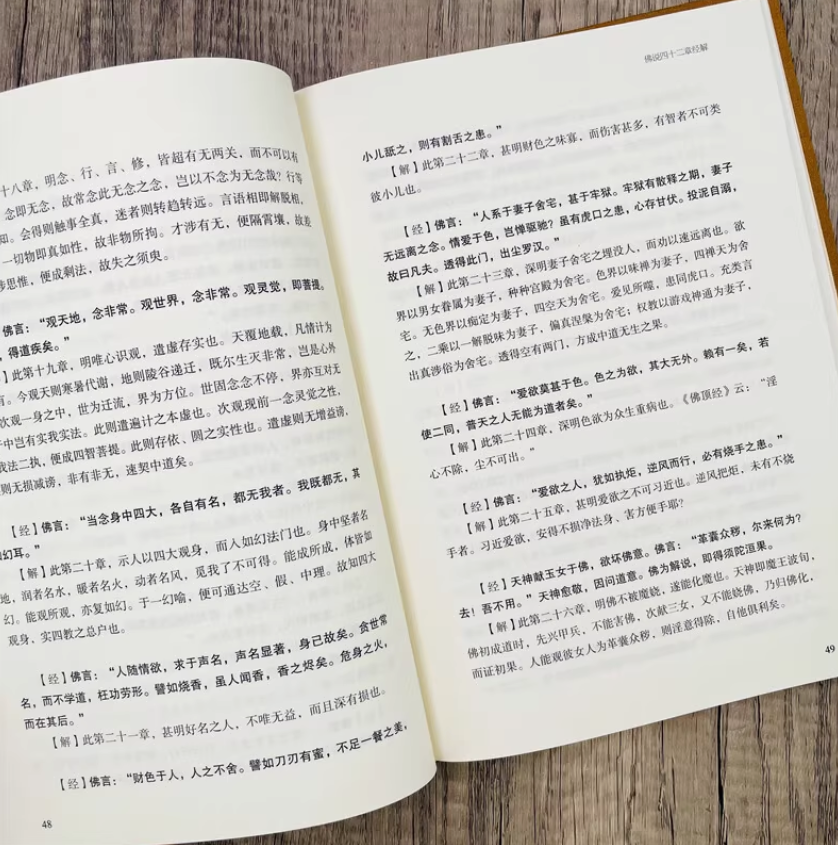 十八章，明念、行、言、修，皆超有无两关，而不可以有
念即无念，故常念此无念之念，岂以不念为无念哉？行等
知。会得则触事全真，迷者则转趋转远。言语相即解脱相，
一切物即真如性，故非物所拘。才涉有无，便隔霄壤，故差
涉思惟，便成剩法，故失之须臾。
佛言：“观天地，念非常。观世界，念非常。观灵觉，即菩提。
，得道疾矣。”
此第十九章，明唯心识观，遣虚存实也。天覆地载，凡情计为
有。今观天则寒暑代谢，地则陵谷递迁，既尔生灭非常，岂是心外
次观一身之中，世为迁流，界为方位。世固念念不停，界亦互对无
于中岂有实我实法。此则遣遍计之本虚也。次观现前一念灵觉之性，
我法二执，便成四智菩提。此则存依、圆之实性也。遣虚则无增益谤，
则无损减谤，非有非无，速契中道矣。
【经】佛言：“当念身中四大，各自有名，都无我者。我既都无，其
如幻耳。”
【解】此第二十章，示人以四大观身，而人如幻法门也。身中坚者名
地，润者名水，暖者名火，动者名风，觅我了不可得。能成所成，体皆如
幻。能观所观，亦复如幻。于一幻喻，便可通达空、假、中理。故知四大
观身，实四教之总户也。
【经】佛言：“人随情欲，求于声名，声名显著，身已故矣。贪世常
名，而不学道，枉功劳形。譬如烧香，虽人闻香，香之烬矣。危身之火，
而在其后。”
【解】此第二十一章，甚明好名之人，不唯无益，而且深有损也。
【经】佛言：“财色于人，人之不舍。譬如刀刃有蜜，不足一餐之美，
48
佛说四十二章经解
小儿舐之，则有割舌之患。”
【解】此第二十二章，甚明财色之味寡，而伤害甚多，有智者不可类
彼小儿也。
【经】佛言：“人系于妻子舍宅，甚于牢狱。牢狱有散释之期，妻子
无远离之念。情爱于色，岂惮驱驰？虽有虎口之患，心存甘伏。投泥自溺，
故曰凡夫。透得此门，出尘罗汉。”
【解】此第二十三章，深明妻子舍宅之埋没人，而劝以速远离也。欲
界以男女眷属为妻子，种种宫殿为舍宅。色界以味禅为妻子，四禅天为舍
宅。无色界以痴定为妻子，四空天为舍宅。爱见所噬，患同虎口。充类言
之，二乘以一解脱味为妻子，偏真涅槃为舍宅；权教以游戏神通为妻子，
出真涉俗为舍宅。透得空有两门，方成中道无生之果。
【经】佛言：“爱欲莫甚于色。色之为欲，其大无外。赖有一矣，若
使二同，普天之人无能为道者矣。”
【解】此第二十四章，深明色欲为众生重病也。《佛顶经》云：“淫
心不除，尘不可出。”
【经】佛言：“爱欲之人，犹如执炬，逆风而行，必有烧手之患。”
【解】此第二十五章，甚明爱欲之不可习近也。逆风把炬，未有不烧
手者。习近爱欲，安得不损净法身、害方便手耶？
【经】天神献玉女于佛，欲坏佛意。佛言：“革囊众秽，尔来何为？
去！吾不用。”天神愈敬，因问道意。佛为解说，即得须陀洹果。
【解】此第二十六章，明佛不被魔娆，遂能化魔也。天神即魔王波旬，
佛初成道时，先兴甲兵，不能害佛，次献三女，又不能娆佛，乃归佛化，
而证初果。人能观彼女人为革囊众秽，则淫意得除，自他俱利矣。
49